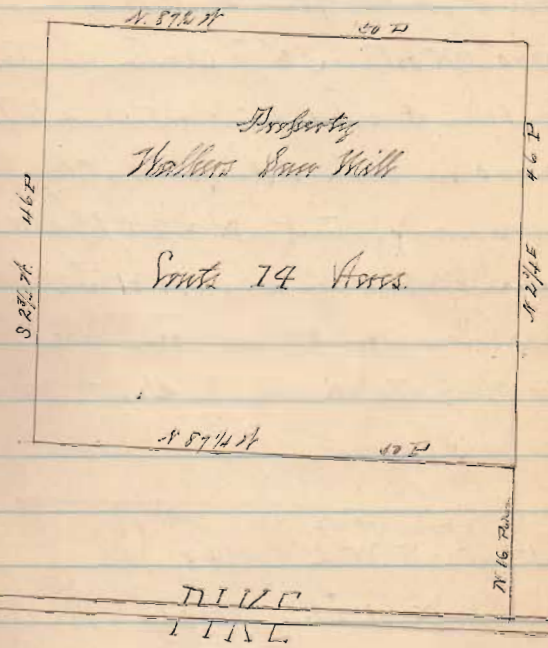 N. 87½ W 50 P
Property
Walkers Saw Mill
Conts 14 Acres.
S 2¾ W 46 P
N 2¼ E 46 P
N 87¼ W 50 P
N 16 Poles
PIKE